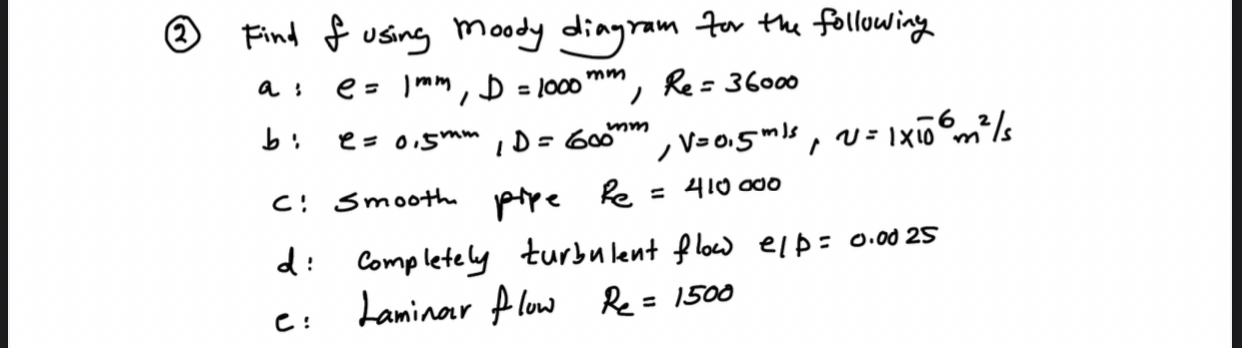 ② Find f using Moody diagram for the following
a : e = 1mm, D = 1000 mm, Re = 36000
b : e = 0.5mm, D = 600mm, V = 0.5 m/s, ν = 1×10⁻⁶ m²/s
c : smooth pipe Re = 410 000
d : Completely turbulent flow e/D = 0.0025
e : Laminar flow Re = 1500